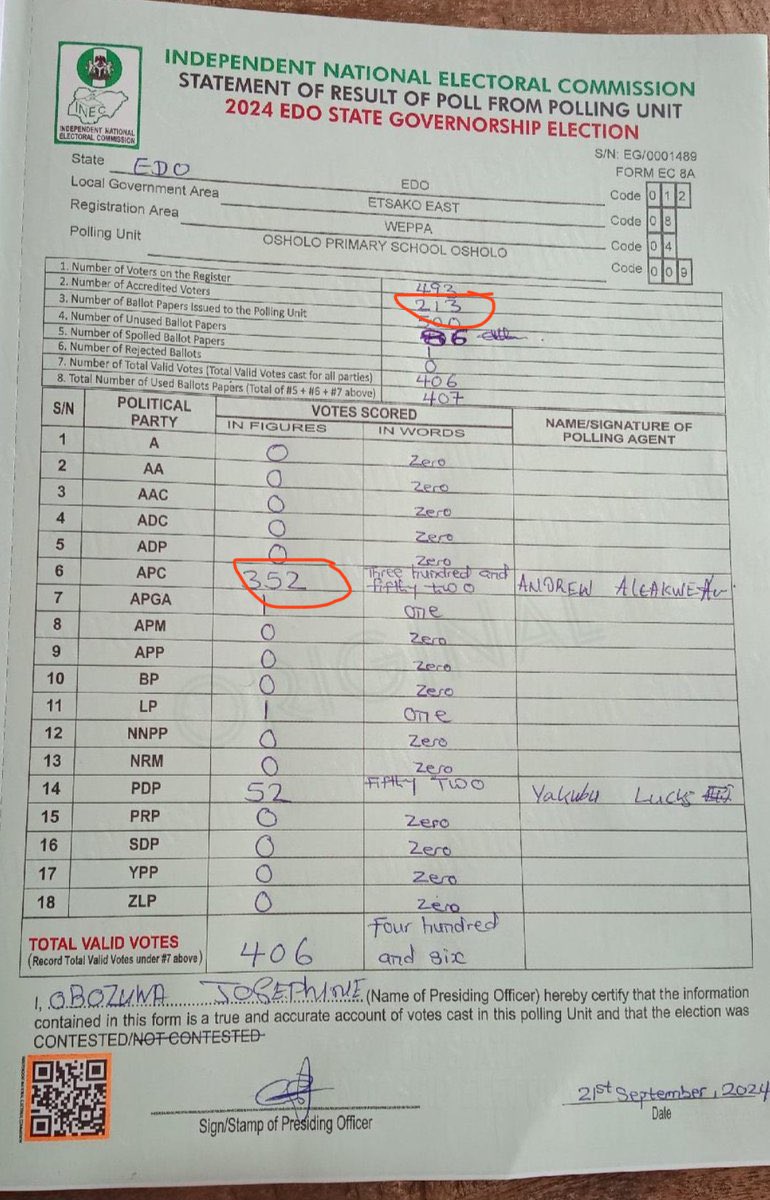 INDEPENDENT NATIONAL ELECTORAL COMMISSION
STATEMENT OF RESULT OF POLL FROM POLLING UNIT
2024 EDO STATE GOVERNORSHIP ELECTION
INEC
INDEPENDENT NATIONAL
ELECTORAL COMMISSION
S/N: EG/0001489
FORM EC 8A
State EDO EDO Code 0 1 2
Local Government Area ETSAKO EAST Code 0 8
Registration Area WEPPA Code 0 4
Polling Unit OSHOLO PRIMARY SCHOOL OSHOLO Code 0 0 9
1. Number of Voters on the Register 493
2. Number of Accredited Voters 213
3. Number of Ballot Papers Issued to the Polling Unit 500
4. Number of Unused Ballot Papers
5. Number of Spoiled Ballot Papers 1
6. Number of Rejected Ballots 0
7. Number of Total Valid Votes (Total Valid Votes cast for all parties) 406
8. Total Number of Used Ballots Papers (Total of #5 + #6 + #7 above) 407
S/N POLITICAL PARTY VOTES SCORED NAME/SIGNATURE OF POLLING AGENT
IN FIGURES IN WORDS
1 A 0 Zero
2 AA 0 Zero
3 AAC 0 Zero
4 ADC 0 Zero
5 ADP 0 Zero
6 APC 352 Three hundred and fifty two ANDREW
7 APGA 1 one
8 APM 0 Zero
9 APP 0 Zero
10 BP 0 Zero
11 LP 1 one
12 NNPP 0 Zero
13 NRM 0 Zero
14 PDP 52 fifty Two Yakubu
15 PRP 0 Zero
16 SDP 0 Zero
17 YPP 0 Zero
18 ZLP 0 Zero
ORIGINAL
TOTAL VALID VOTES 406 four hundred
(Record Total Valid Votes under #7 above) and six
I, OBOZUWA JOSEPHINE (Name of Presiding Officer) hereby certify that the information
contained in this form is a true and accurate account of votes cast in this polling Unit and that the election was
CONTESTED/NOT CONTESTED
21st September, 2024
Sign/Stamp of Presiding Officer Date